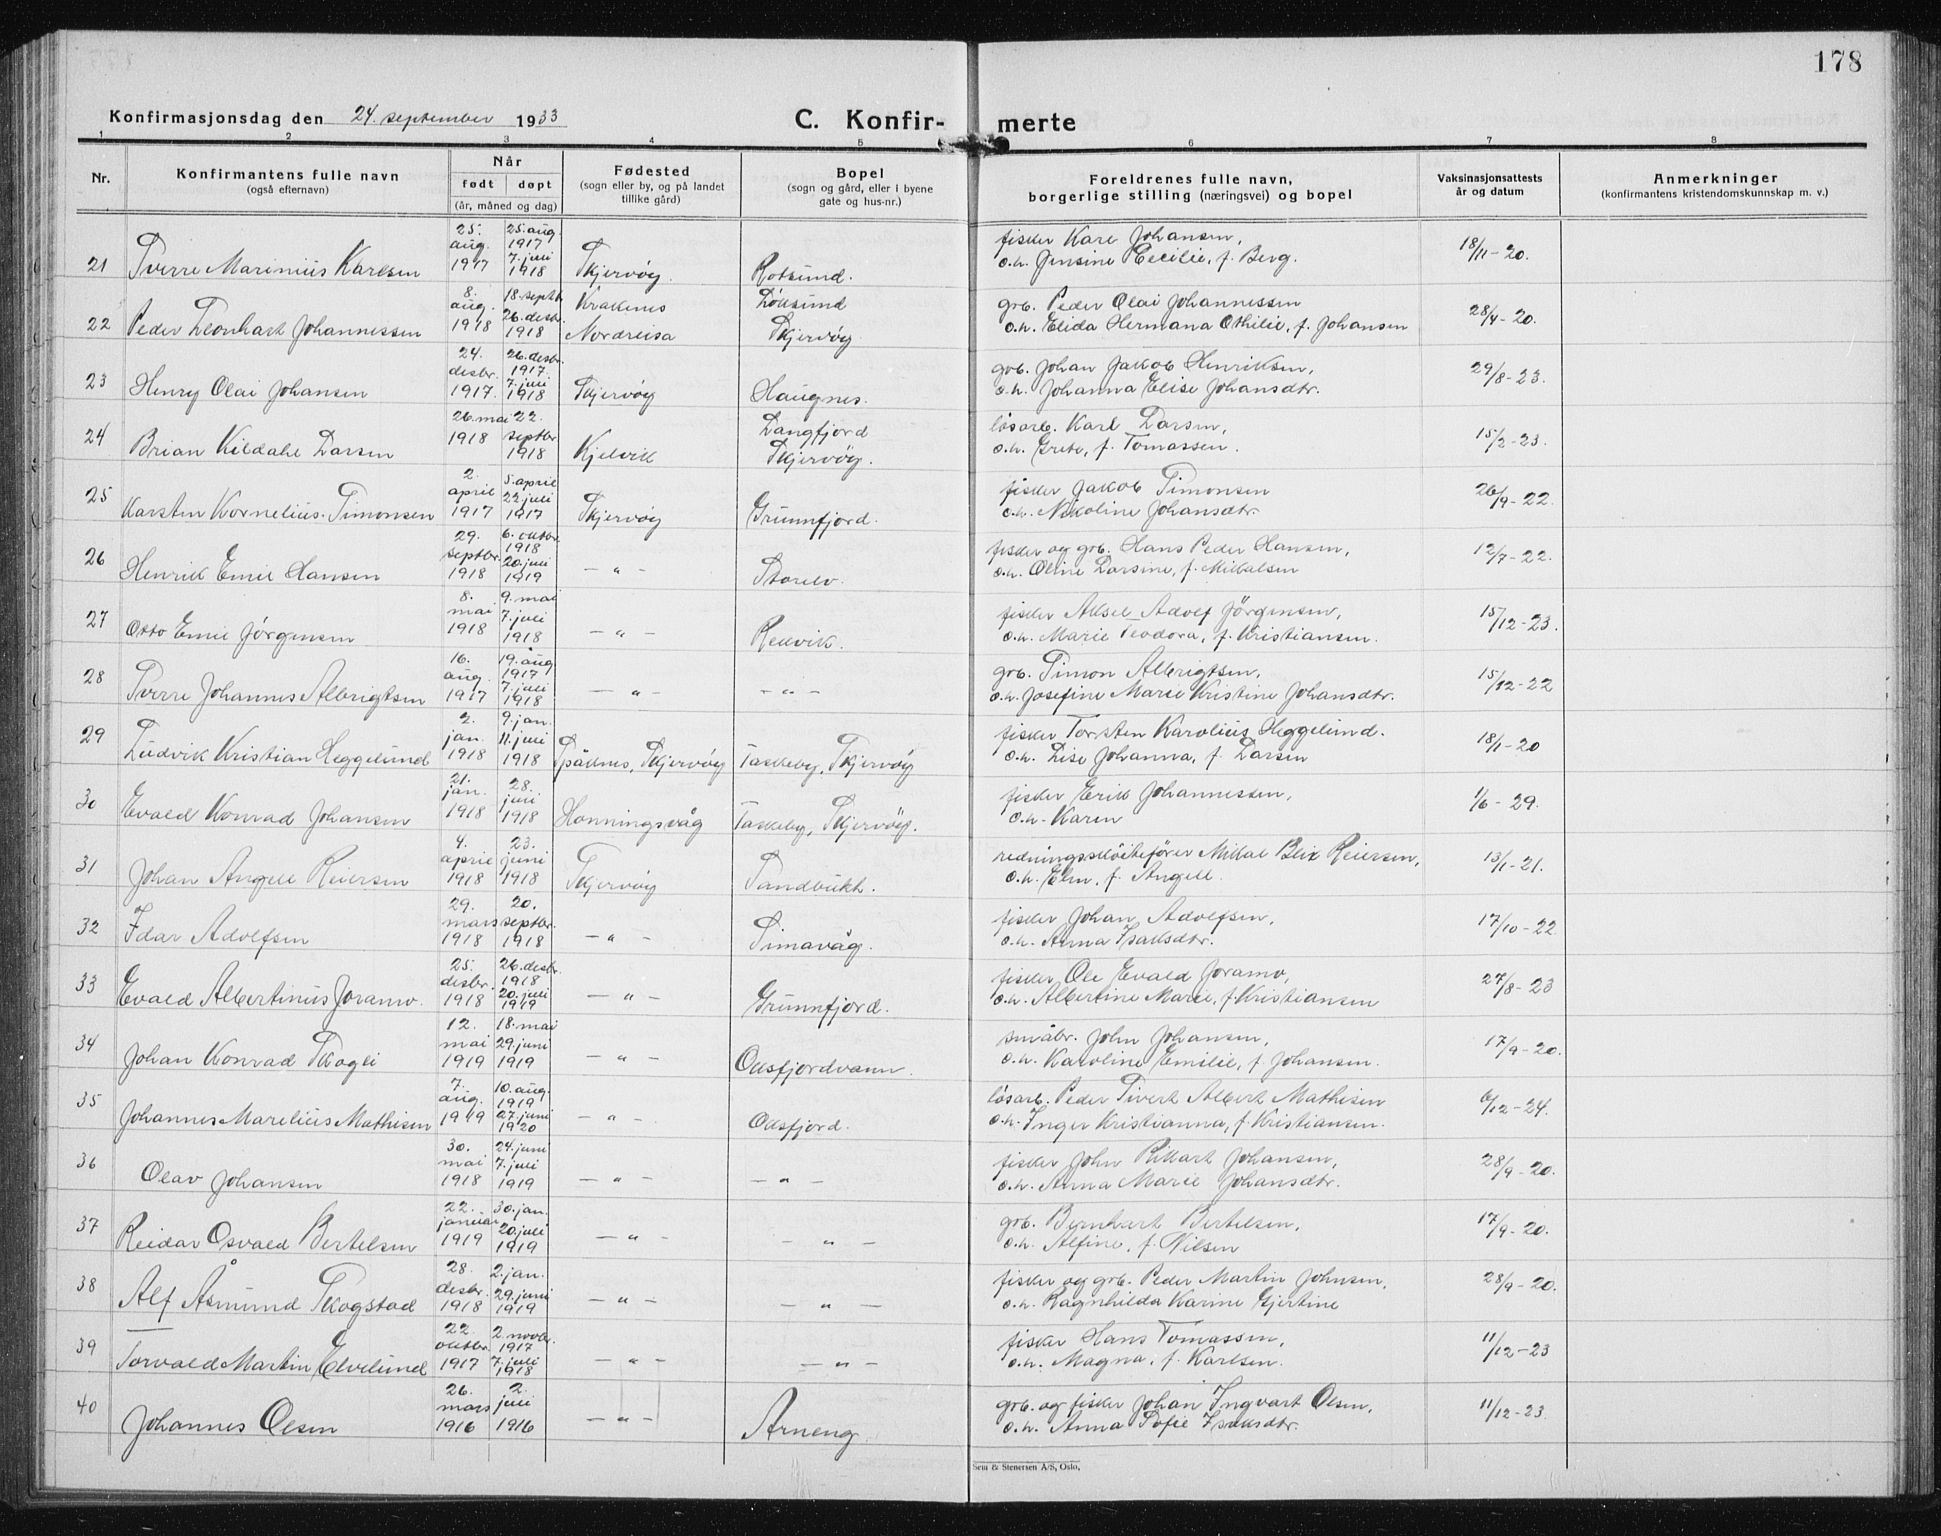 178
Konfirmasjonsdag den 24. september 1933
C. Konfir- merte
1 2 3 4 5 6 7 8
Nr. Konfirmantens fulle navn (også efternavn) Når født døpt (år, måned og dag) Fødested (sogn eller by, og på landet tillike gård) Bopel (sogn og gård, eller i byene gate og hus-nr.) Foreldrenes fulle navn, borgerlige stilling (næringsvei) og bopel Vaksinasjonsattests år og datum Anmerkninger (konfirmantens kristendomskunnskap m. v.)
21 Sverre Marinius Karlsen 25. aug. 1917 25. aug. 1917 7. juli 1918 Skjervøy Rotsund. fisker Karl Johansen, o.h. Jensine Cecilie, f. Berg. 18/11-20.
22 Peder Leonhart Johannessen 8. aug. 1918 18. septr. 26. desbr. 1918 Krakenes Nordreisa Løksund Skjervøy grb. Peder Olai Johannessen o.h. Elida Hermana Othilie, f. Johansen 28/4-20.
23 Henry Olai Johansen 24. desbr. 1917. 26. desbr. 1917. 7. juli 1918 Skjervøy Haugnes. grb. Johan Jakob Henriksen, o.h. Johanna Elise Johansdtr. 29/8-23.
24 Brian Kildahl Larsen 26. mai 1918 22. septbr 1918 Kjelvik Langfjord Skjervøy. løsarb. Karl Larsen, o.h. Grete, f. Tomassen. 15/2-23.
25 Karsten Kornelius Simonsen 2. april 1917 5. april 22. juli 1917 Skjervøy Grunnfjord. fisker Jakob Simonsen o.h. Nikoline Johansdtr. 26/9-22.
26 Henrik Emil Hansen 29. septbr. 1918 6. oktbr. 1918 20. juli 1919 - " - Storelv. fisker og grb. Hans Peder Hansen, o.h. Oline Larsine, f. Mikkalsen 12/7-22.
27 Otto Emil Jörgensen 8. mai 1918 9. mai 7. juli 1918 - " - Reuvik. fisker Aksel Adolf Jörgensen, o.h. Marie Teodora, f. Kristiansen. 15/12-23.
28 Sverre Johannes Albrigtsen 16. aug. 1917 19. aug. 1917 7. juli 1918 - " - - " - grb. Simon Albrigtsen, o.h. Josefine Marie Kristine Johansdtr. 15/12-22
29 Ludvik Kristian Heggelund 2. jan. 1918 9. jan. 11. juli 1918 Spåknes, Skjervøy Taskeby, Skjervøy fisker Torsten Karolius Heggelund. o.h. Lise Johanna, f. Larsen 18/1-20
30 Evald Konrad Johansen 21. jan. 1918 28. juli 1918 Honningsvåg Taskeby, Skjervöy. fisker Erik Johannessen, o.h. Karen 1/6-29.
31 Johan Angell Reiersen 4. april 1918 23. juni 1918 Skjervøy Sandbukt. redningsskøitefører Mikal Blix Reiersen, o.h. Elen, f. Angell. 13/1-21.
32 Idar Adolfsen 29. mars 1918 20. septbr. 1918 - " - Simavåg. fisker Johan Adolfsen, o.h. Anna Isaksdtr. 17/10-22
33 Evald Albertinus Joramo. 25. desbr. 1918 26. desbr. 1918 20. juli 1919 - " - Grunnfjord. fisker Ole Evald Joramo, o.h. Albertine Marie, f. Kristiansen 27/8-23
34 Johan Konrad Skogli 12. mai 1919 18. mai 29. juni 1919 - " - Oksfjordvann. småbr. John Johansen, o.h. Karoline Emilie, f. Johansen. 17/9-20.
35 Johannes Marelius Mathisen 7. aug. 1919 10. aug. 1919 27. juni 1920 - " - Oksfjord. løsarb. Peder Sivert Albert Mathisen o.h. Inger Kristianna, f. Kristiansen. 6/12-24.
36 Olav Johansen 30. mai 1918 24. juni 7. juli 1919 - " - - " - fisker John Rikart Johansen, o.h. Anna Marie Johansdtr. 28/9-20.
37 Reidar Osvald Bertelsen 22. januar 1919 30. jan. 20. juli 1919 - " - - " - grb. Bernhart Bertelsen, o.h. Alfine, f. Nilsen 17/9-20.
38 Alf Åsmund Skogstad 28. desbr. 1918 2. jan. 29. juni 1919 - " - - " - fisker og grb. Peder Martin Johnsen, o.h. Ragnhilda Karine Gjertine 28/9-20.
39 Torvald Martin Elvelund 22. oktbr. 1917 2. novbr. 1917 7. juli 1918 - " - - " - fisker Hans Tomassen, o.h. Magna, f. Karlsen. 11/12-23
40 Johannes Olsen 26. mars 1916 2. juli 1916 - " - Arneng. grb. og fisker Johan Ingvart Olsen, o.h. Anna Sofie Isaksdtr. 11/12-23.
Sem & Stenersen A/S, Oslo.